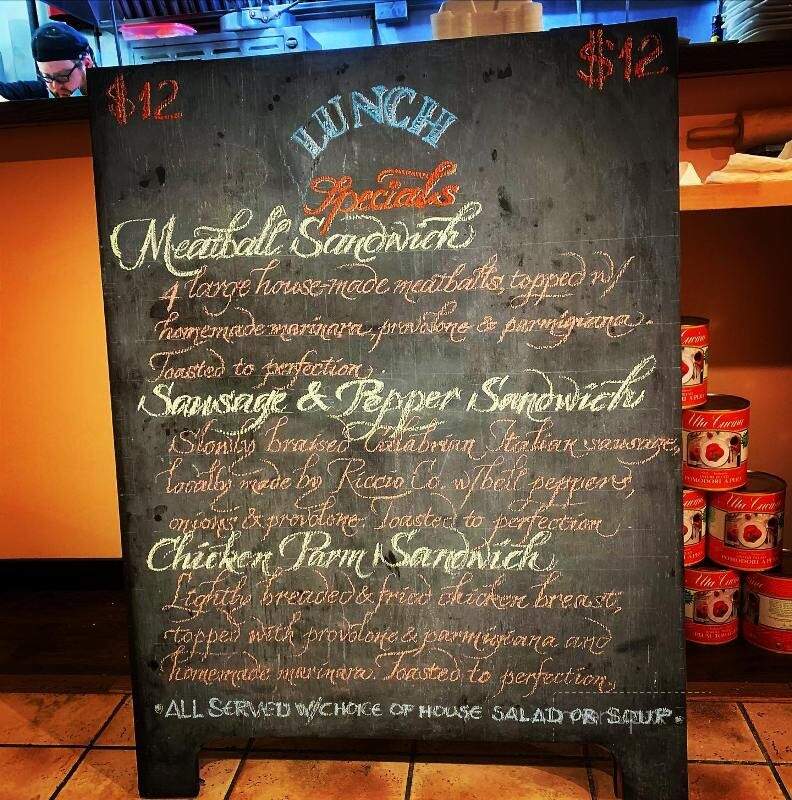 $12
$12
LUNCH
Specials
Meatball Sandwich
4 large house-made meatballs, topped w/
homemade marinara, provolone & parmigiana.
Toasted to perfection.
Sausage & Pepper Sandwich
Slowly braised Calabrian Italian sausage,
locally made by Riccio Co. w/bell peppers,
onions & provolone. Toasted to perfection.
Chicken Parm Sandwich
Lightly breaded & fried chicken breast,
topped with provolone & parmigiana and
homemade marinara. Toasted to perfection.
•ALL SERVED W/CHOICE OF HOUSE SALAD OR SOUP•
Uta Cucina
POMODORI A PERA
Uta Cucina
POMODORI A PERA
Uta Cucina